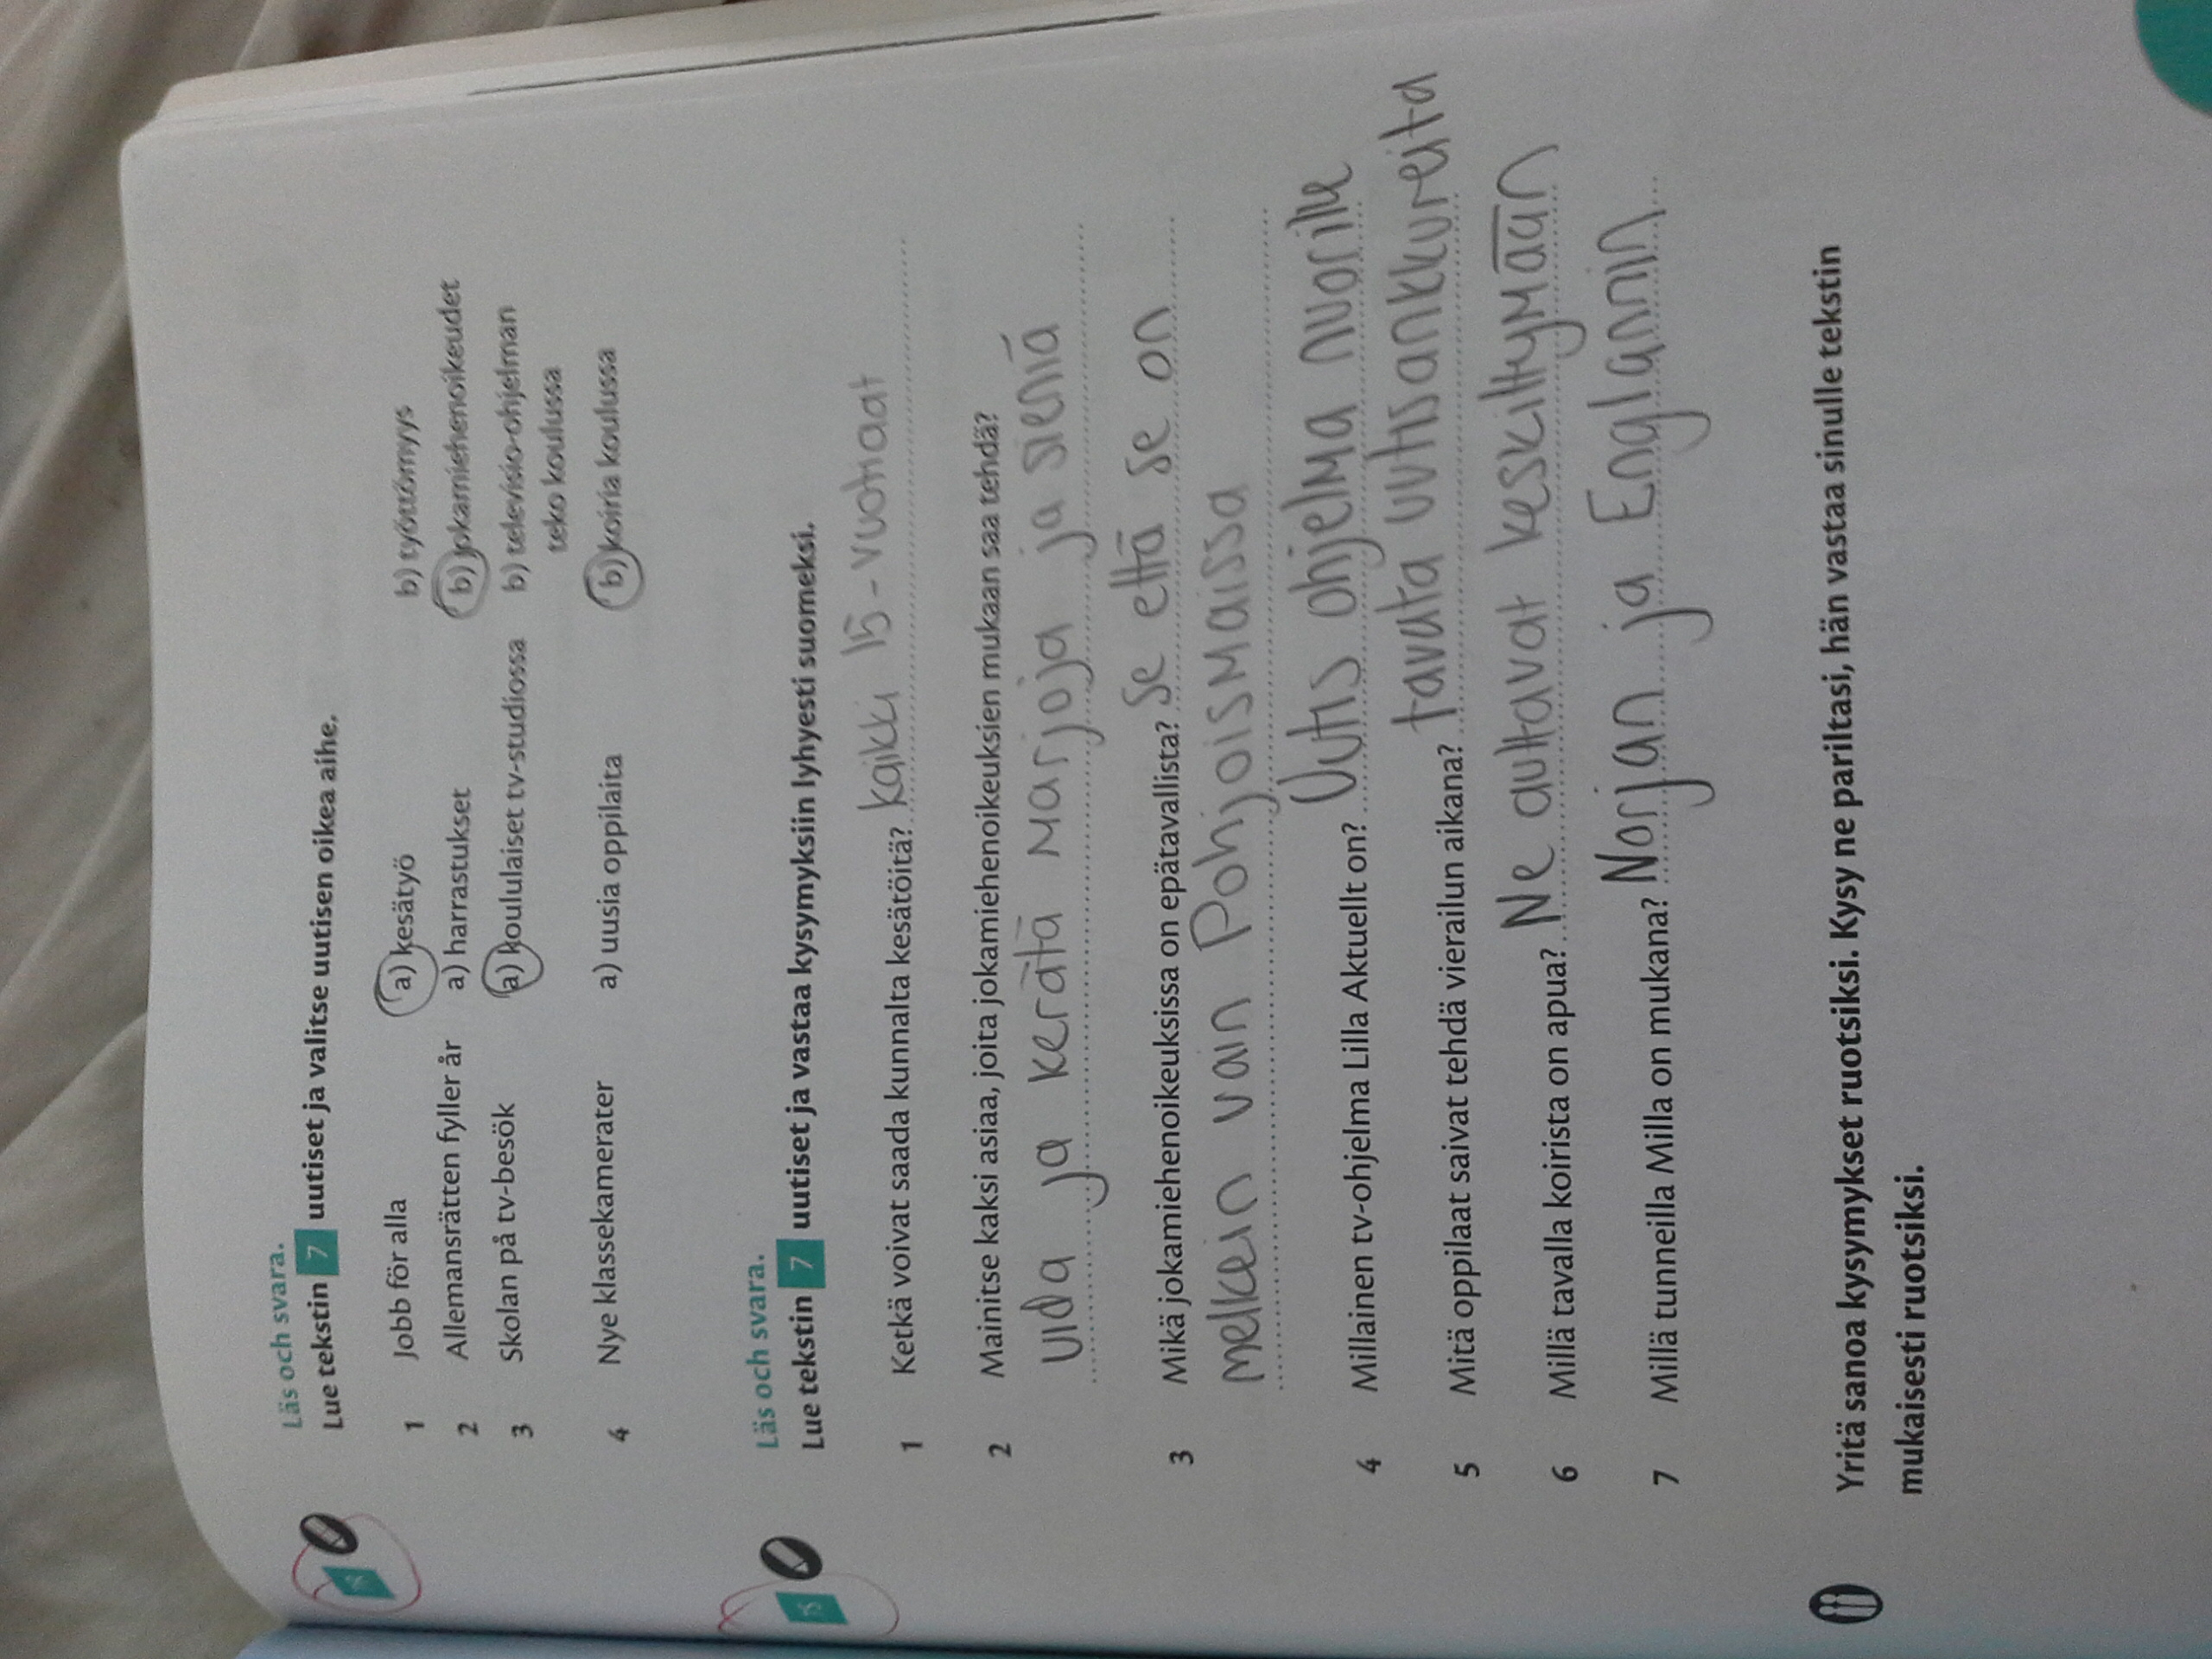 Läs och svara.
Lue tekstin 7 uutiset ja valitse uutisen oikea aihe.
1 Jobb för alla a) kesätyö b) työttömyys
2 Allemansrätten fyller år a) harrastukset b) jokamiehenoikeudet
3 Skolan på tv-besök a) koululaiset tv-studiossa b) televisio-ohjelman
teko koulussa
4 Nye klassekamerater a) uusia oppilaita b) koiria koulussa
Läs och svara.
Lue tekstin 7 uutiset ja vastaa kysymyksiin lyhyesti suomeksi.
1 Ketkä voivat saada kunnalta kesätöitä? kaikki 15-vuotiaat
2 Mainitse kaksi asiaa, joita jokamiehenoikeuksien mukaan saa tehdä?
uida ja kerätä marjoja ja sieniä
3 Mikä jokamiehenoikeuksissa on epätavallista? se että se on
melkein vain Pohjoismaissa
4 Millainen tv-ohjelma Lilla Aktuellt on? Uutis ohjelma nuorille
5 Mitä oppilaat saivat tehdä vierailun aikana? tavata uutisankkureita
6 Millä tavalla koirista on apua? Ne auttavat keskittymään
7 Millä tunneilla Milla on mukana? Norjan ja Englannin
Yritä sanoa kysymykset ruotsiksi. Kysy ne pariltasi, hän vastaa sinulle tekstin
mukaisesti ruotsiksi.